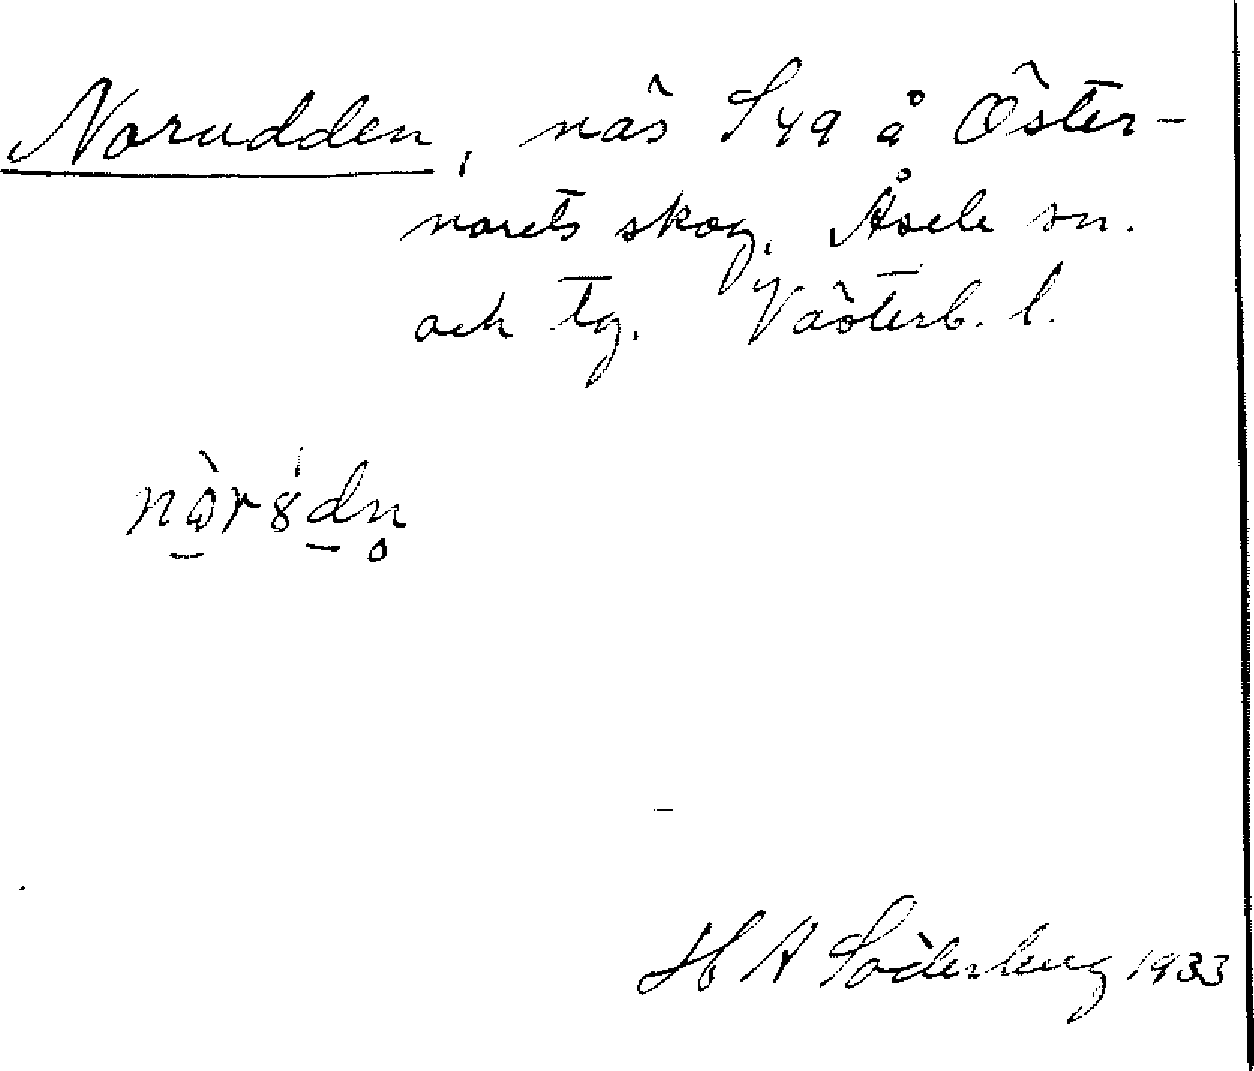 Norudden, näs S49 å Öster-
norets skog. Åsele sn.
och tg. Västerb. l.
nòrȣdn̥
H A Söderberg 1933